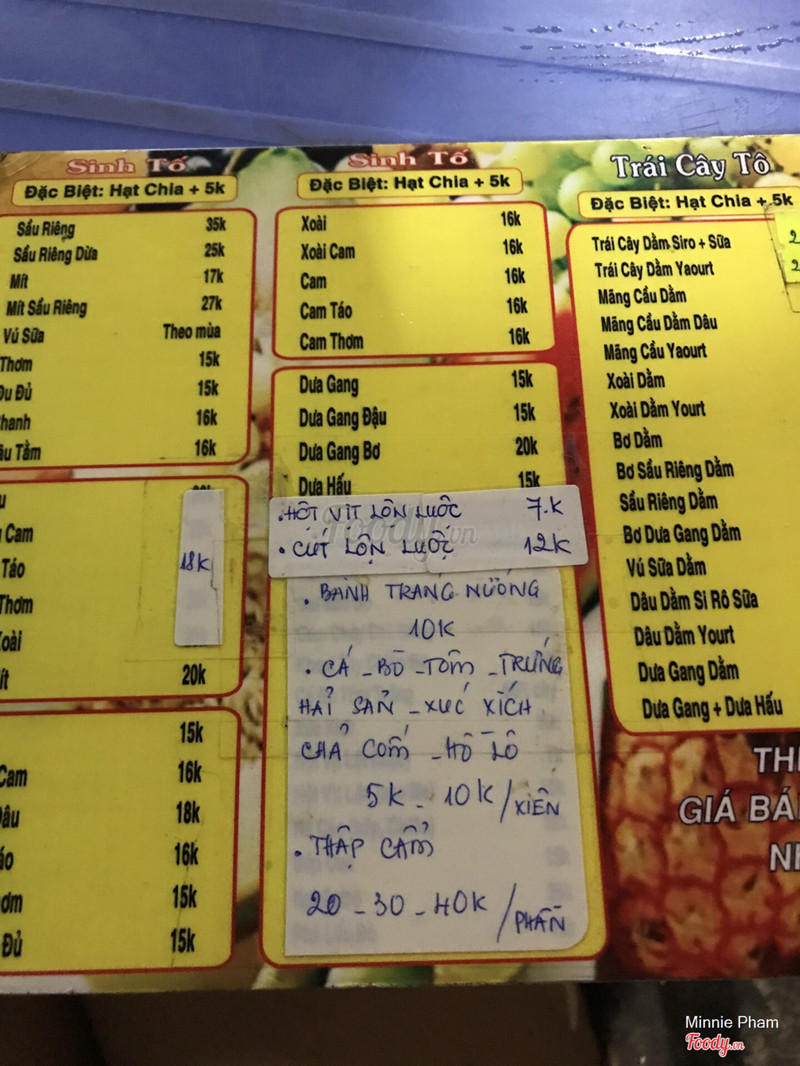 Sinh Tố
Đặc Biệt: Hạt Chia + 5k
Sầu Riêng 35k
Sầu Riêng Dừa 25k
Mít 17k
Mít Sầu Riêng 27k
Vú Sữa Theo mùa
Thơm 15k
Đu Đủ 15k
hanh 16k
âu Tằm 16k
Cam
Táo 18k
Thơm
oài
ít 20k
15k
Cam 16k
âu 18k
áo 16k
ơm 15k
Đủ 15k
Sinh Tố
Đặc Biệt: Hạt Chia + 5k
Xoài 16k
Xoài Cam 16k
Cam 16k
Cam Táo 16k
Cam Thơm 16k
Dưa Gang 15k
Dưa Gang Đậu 15k
Dưa Gang Bơ 20k
Dưa Hấu 15k
. HỘT VỊT LỘN LUỘC 7.K
. CÚT LỘN LUỘC 12K
. BÁNH TRÁNG NƯỚNG
10K
. CÁ - BÒ - TÔM - TRỨNG
HẢI SẢN - XÚC XÍCH
CHẢ CỐM - HỒ LÔ
5K - 10K / XIÊN
. THẬP CẨM
20 - 30 - 40K / PHẦN
Trái Cây Tô
Đặc Biệt: Hạt Chia + 5k
Trái Cây Dầm Siro + Sữa
Trái Cây Dầm Yaourt
Mãng Cầu Dầm
Mãng Cầu Dầm Dâu
Mãng Cầu Yaourt
Xoài Dầm
Xoài Dầm Yourt
Bơ Dầm
Bơ Sầu Riêng Dầm
Sầu Riêng Dầm
Bơ Dưa Gang Dầm
Vú Sữa Dầm
Dâu Dầm Si Rô Sữa
Dâu Dầm Yourt
Dưa Gang Dầm
Dưa Gang + Dưa Hấu
GIÁ BÁ
Foody.vn
Minnie Pham
Foody.vn